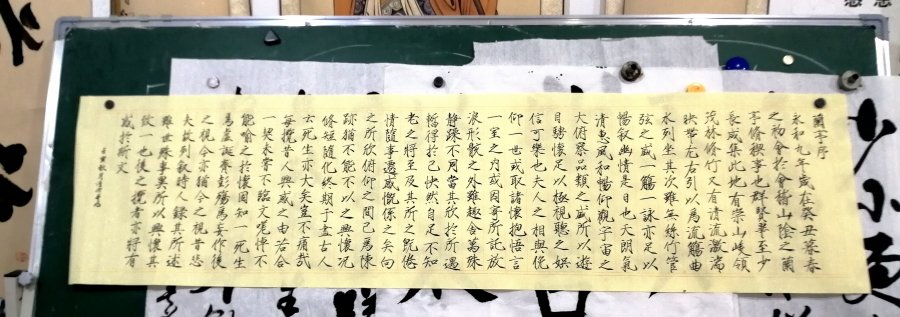 蘭亭序
永和九年歲在癸丑暮春
之初會於會稽山陰之蘭
亭脩稧事也群賢畢至少
長咸集此地有崇山峻領
茂林脩竹又有清流激湍
映帶左右引以為流觴曲
水列坐其次雖無絲竹管
弦之盛一觴一詠亦足以
暢敘幽情是日也天朗氣
清惠風和暢仰觀宇宙之
大俯察品類之盛所以遊
目騁懷足以極視聽之娛
信可樂也夫人之相與俯
仰一世或取諸懷抱悟言
一室之內或因寄所託放
浪形骸之外雖趣舍萬殊
靜躁不同當其欣於所遇
暫得於己快然自足不知
老之將至及其所之既倦
情隨事遷感慨係之矣向
之所欣俯仰之間已為陳
跡猶不能不以之興懷況
脩短隨化終期于盡古人
云死生亦大矣豈不痛哉
每攬昔人興感之由若合
一契未嘗不臨文嗟悼不
能喻之於懷固知一死生
為虛誕齊彭殤為妄作後
之視今亦猶今之視昔悲
夫故列敘時人錄其所述
雖世殊事異所以興懷其
致一也後之攬者亦將有
感於斯文